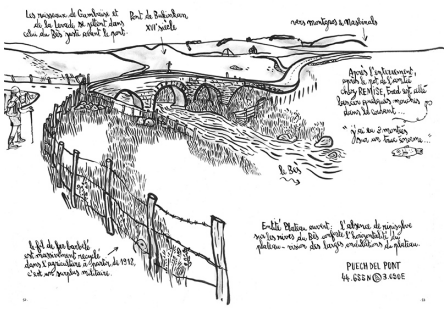 Les ruisseaux de Gambaïse et
de la Levade se jettent dans
celui du Bès juste avant le pont.
Pont de
XVIᵉ siècle
vers montagnes & Nasbinals
Après l'enterrement,
après le pot de l'amitié
chez REMISE, Fred est allé
quelques mouches
dans le courant...
"j'ai eu 3 montées
sur un truc énorme..."
le Bès
le fil de fer barbelé
est massivement recyclé
dans l'agriculture à partir de 1918,
c'est un surplus militaire.
Entité Plateau ouvert: l'absence de ripisylve
sur les rives du Bès renforce l'horizontalité du
plateau - vision des larges ondulations du plateau.
PUECH DEL PONT
44.658N 3.090E